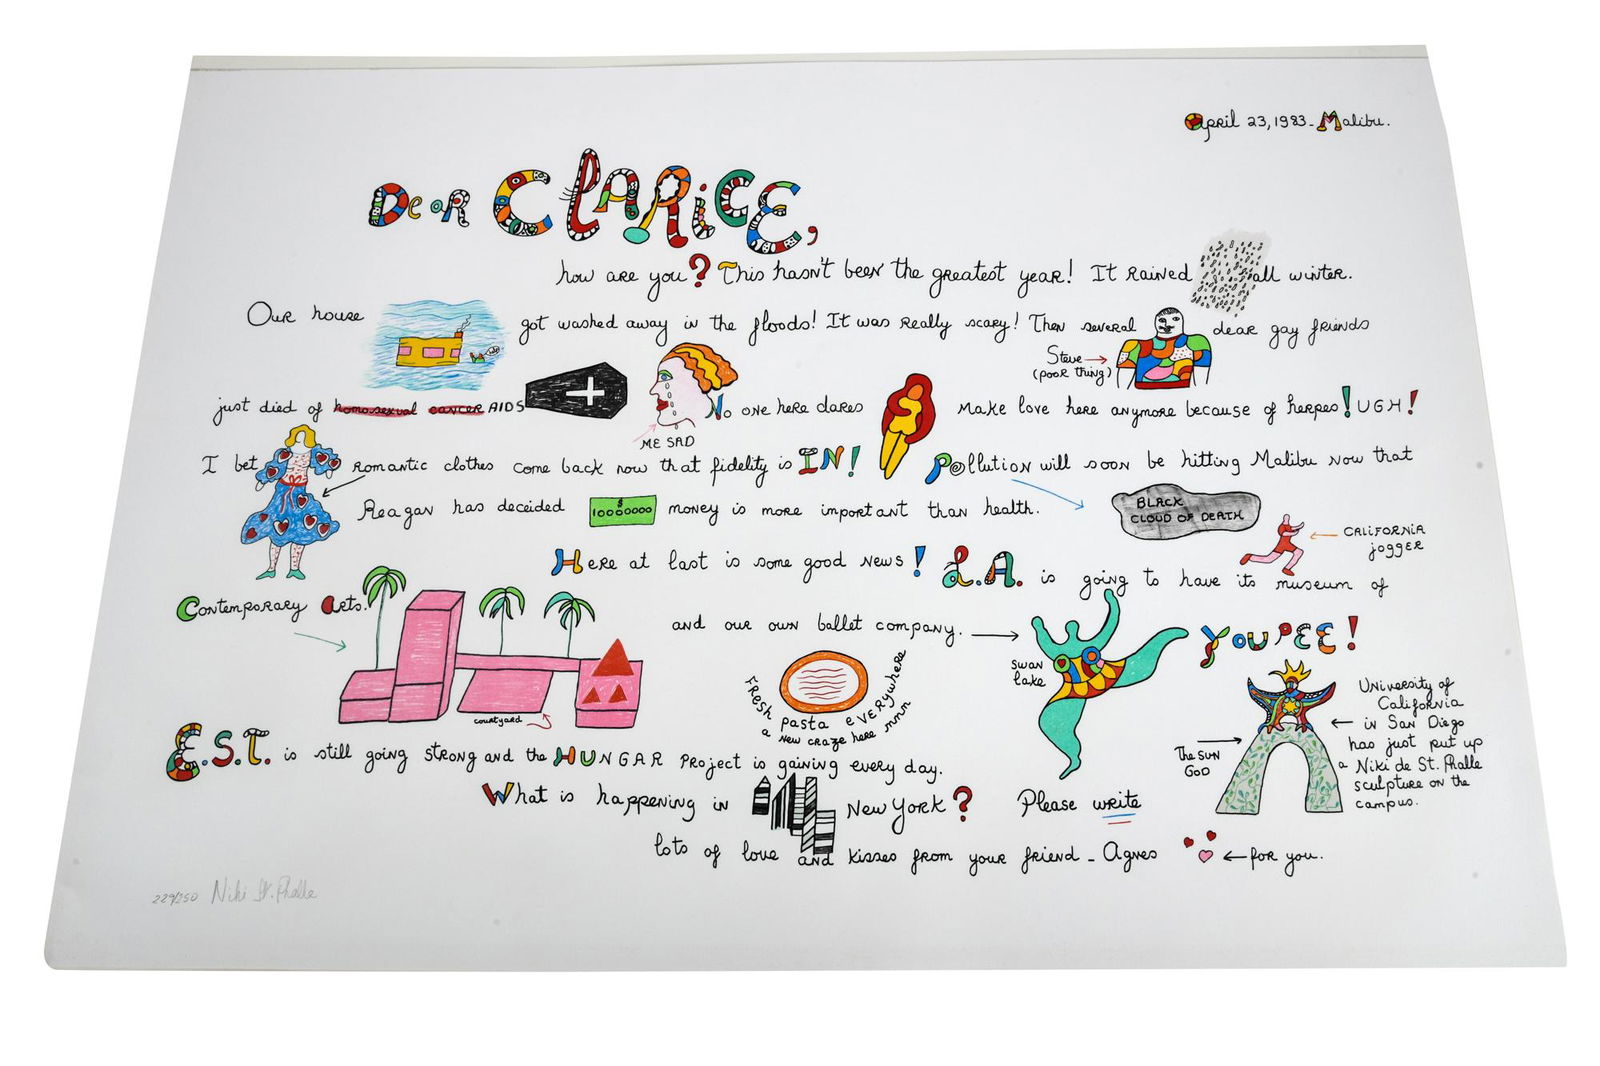 April 23, 1983 - Malibu.
Dear Clarice,
how are you? This hasn't been the greatest year! It rained all winter.
Our house got washed away in the floods! It was really scary! Then several dear gay friends
Help
Steve
(poor thing)
just died of homosexual cancer AIDS No one here dares make love here anymore because of herpes! UGH!
ME SAD
I bet romantic clothes come back now that fidelity is IN! Pollution will soon be hitting Malibu now that
Reagan has deceided $ 10000000 money is more important than health.
BLACK
CLOUD OF DEATH
CALIFORNIA
jogger
Here at last is some good news! L.A. is going to have its museum of
Contemporary Arts.
and our own ballet company. YOUPEE!
swan
lake
courtyard
FResh pasta eVERywhere
a new craze here mnnn
University of
California
in San Diego
has just put up
a Niki de St. Phalle
sculpture on the
campus.
The SUN
GOD
E.S.T. is still going strong and the HUNGAR PROJECT is gaining every day.
What is happening in New York? Please write
lots of love and kisses from your friend - Agnes for you.
229/250 Niki St. Phalle